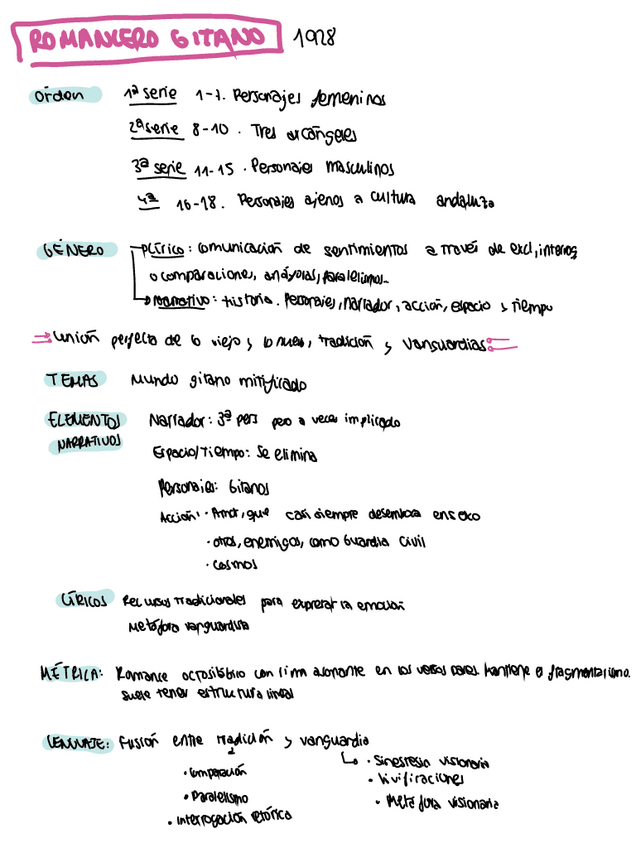 ROMANCERO GITANO 1928
Orden 1ª serie 1-7. Personajes femeninos
2ª serie 8-10. Tres arcángeles
3ª serie 11-15. Personajes masculinos
4ª 16-18. Personajes ajenos a cultura andaluza
GÉNERO lírico: comunicación de sentimientos a través de excl, interrog
o comparaciones, anáforas, paralelismos..
narrativo: historia. Personajes, narrador, acción, espacio y tiempo
unión perfecta de lo viejo y lo nuevo, tradición y vanguardias
TEMAS Mundo gitano mitificado
ELEMENTOS NARRATIVOS Narrador: 3ª pers pero a veces implicado
Espacio/Tiempo: Se elimina
Personajes: Gitanos
Acción: · Amor, que casi siempre desemboca en
· otros, enemigos, como Guardia Civil
· Cosmos
LÍRICOS Recursos tradicionales para expresar la emoción
Metáfora vanguardista
MÉTRICA: Romance octosílabo con rima asonante en los versos pares. Mantiene el fragmentarismo.
suele tener estructura lineal
LENGUAJE: Fusión entre tradición y vanguardia
· Comparación
· Paralelismo
· Interrogación retórica
· Sinestesia visionaria
· Vivificaciones
· Metáfora visionaria